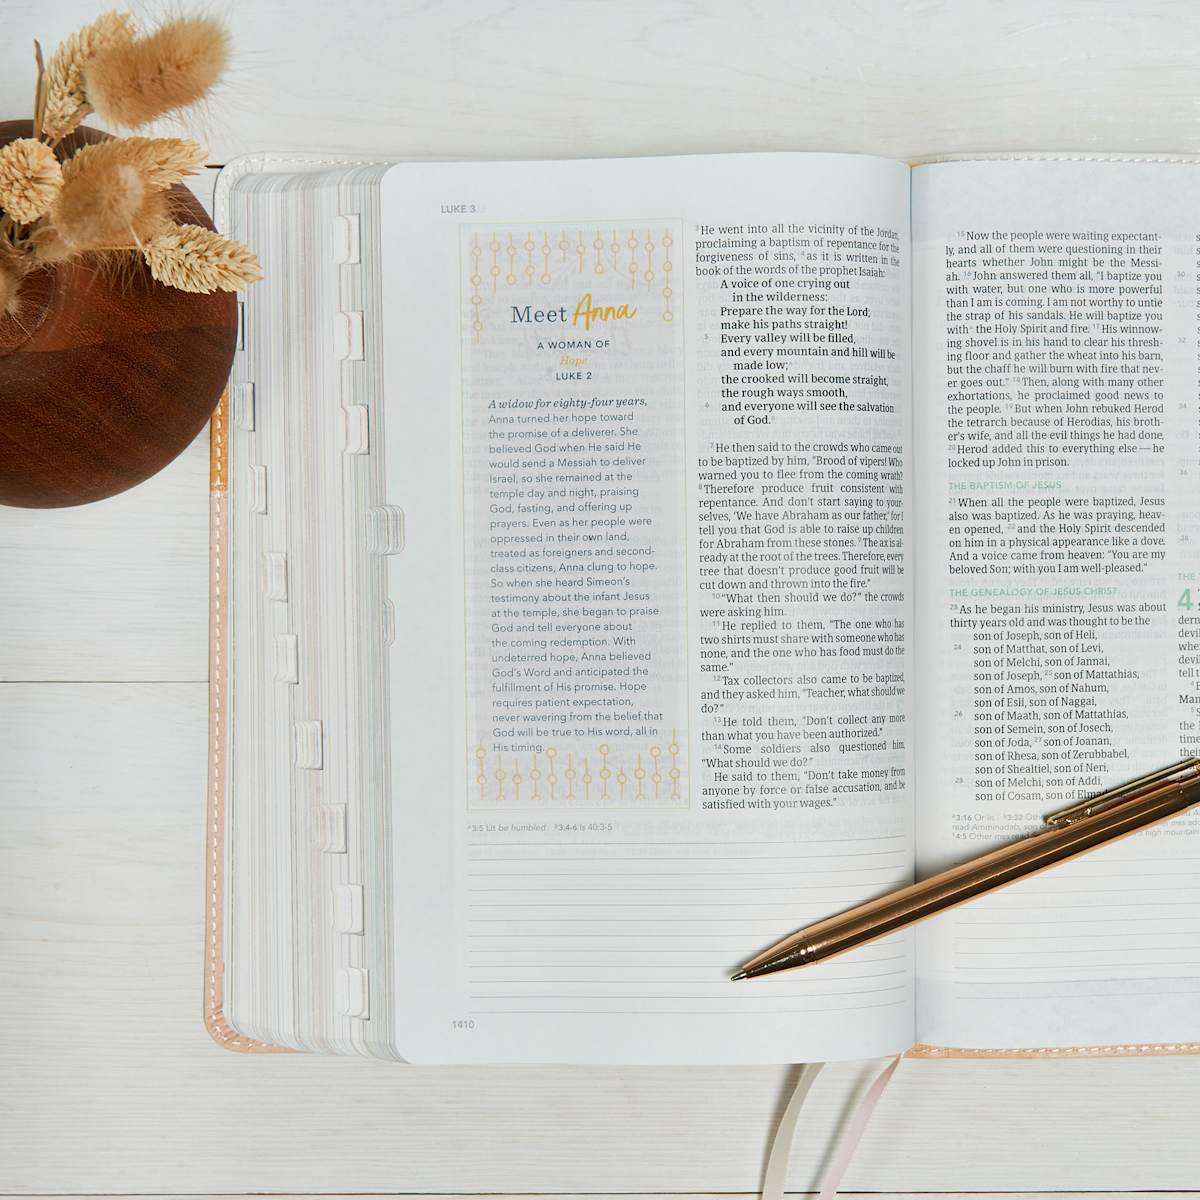 LUKE 3
Meet Anna
A WOMAN OF
Hope
LUKE 2
A widow for eighty-four years,
Anna turned her hope toward
the promise of a deliverer. She
believed God when He said He
would send a Messiah to deliver
Israel, so she remained at the
temple day and night, praising
God, fasting, and offering up
prayers. Even as her people were
oppressed in their own land,
treated as foreigners and second-
class citizens, Anna clung to hope.
So when she heard Simeon's
testimony about the infant Jesus
at the temple, she began to praise
God and tell everyone about
the coming redemption. With
undeterred hope, Anna believed
God's Word and anticipated the
fulfillment of His promise. Hope
requires patient expectation,
never wavering from the belief that
God will be true to His word, all in
His timing.
3 He went into all the vicinity of the Jordan,
proclaiming a baptism of repentance for the
forgiveness of sins, 4 as it is written in the
book of the words of the prophet Isaiah:
A voice of one crying out
in the wilderness:
Prepare the way for the Lord;
make his paths straight!
5 Every valley will be filled,
and every mountain and hill will be
made low;
the crooked will become straight,
the rough ways smooth,
6 and everyone will see the salvation
of God.
7 He then said to the crowds who came out
to be baptized by him, "Brood of vipers! Who
warned you to flee from the coming wrath?
8 Therefore produce fruit consistent with
repentance. And don't start saying to your-
selves, 'We have Abraham as our father,' for I
tell you that God is able to raise up children
for Abraham from these stones. 9 The ax is al-
ready at the root of the trees. Therefore, every
tree that doesn't produce good fruit will be
cut down and thrown into the fire."
10 "What then should we do?" the crowds
were asking him.
11 He replied to them, "The one who has
two shirts must share with someone who has
none, and the one who has food must do the
same."
12 Tax collectors also came to be baptized,
and they asked him, "Teacher, what should we
do?"
13 He told them, "Don't collect any more
than what you have been authorized."
14 Some soldiers also questioned him,
"What should we do?"
He said to them, "Don't take money from
anyone by force or false accusation, and be
satisfied with your wages."
3:5 Lit be humbled 3:4-6 Is 40:3-5
1410
15 Now the people were waiting expectant-
ly, and all of them were questioning in their
hearts whether John might be the Messi-
ah. 16 John answered them all, "I baptize you
with water, but one who is more powerful
than I am is coming. I am not worthy to untie
the strap of his sandals. He will baptize you
with the Holy Spirit and fire. 17 His winnow-
ing shovel is in his hand to clear his thresh-
ing floor and gather the wheat into his barn,
but the chaff he will burn with fire that nev-
er goes out." 18 Then, along with many other
exhortations, he proclaimed good news to
the people. 19 But when John rebuked Herod
the tetrarch because of Herodias, his broth-
er's wife, and all the evil things he had done,
20 Herod added this to everything else — he
locked up John in prison.
THE BAPTISM OF JESUS
21 When all the people were baptized, Jesus
also was baptized. As he was praying, heav-
en opened, 22 and the Holy Spirit descended
on him in a physical appearance like a dove.
And a voice came from heaven: "You are my
beloved Son; with you I am well-pleased."
THE GENEALOGY OF JESUS CHRIST
23 As he began his ministry, Jesus was about
thirty years old and was thought to be the
son of Joseph, son of Heli,
24 son of Matthat, son of Levi,
son of Melchi, son of Jannai,
son of Joseph, 25 son of Mattathias,
son of Amos, son of Nahum,
son of Esli, son of Naggai,
26 son of Maath, son of Mattathias,
son of Semein, son of Josech,
son of Joda, 27 son of Joanan,
son of Rhesa, son of Zerubbabel,
son of Shealtiel, son of Neri,
28 son of Melchi, son of Addi,
son of Cosam, son of
3:16 Or in 3:32
read Amminadab, son
4:5 Other mss read
30
32
34
36
38
THE
4